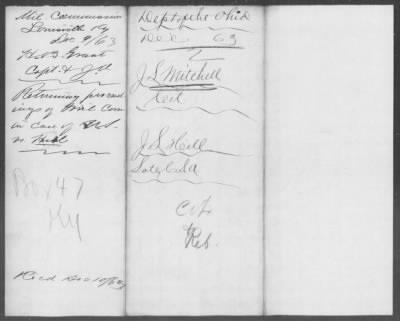 Mil. Commission
Louisville Ky
Dec 9/63
H. G. Grant
Capt. & J.A.
Returning proceed
ings of Mil Com
in case of U.S.
vs.
Box 47
Ky
Recd Dec 10/63
Dept of the Ohio
Dec 63
J. L. Mitchell
J. L. Hill
Late C.S.A
Reb.